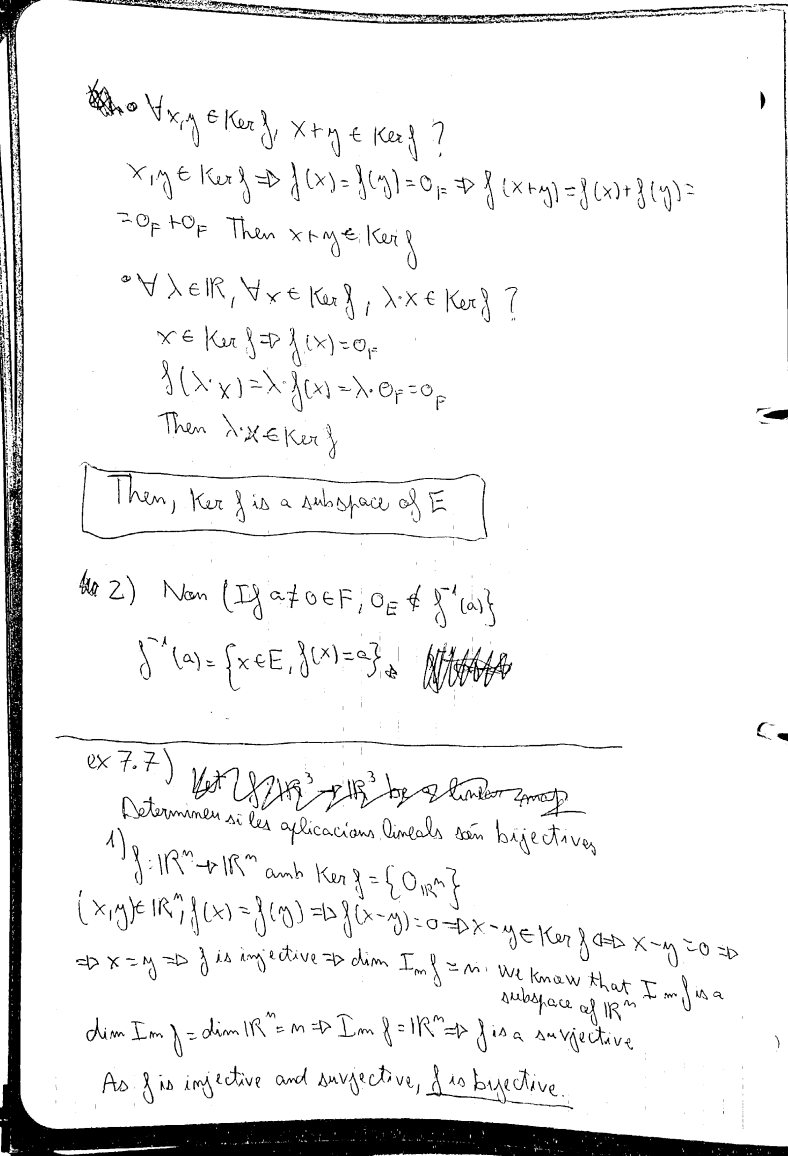 • ∀x,y ∈ Ker f, x+y ∈ Ker f ?
x,y ∈ Ker f ⇒ f(x) = f(y) = 0_F ⇒ f(x+y) = f(x) + f(y) =
= 0_F + 0_F Then x+y ∈ Ker f
• ∀ λ ∈ ℝ, ∀x ∈ Ker f, λ·x ∈ Ker f ?
x ∈ Ker f ⇒ f(x) = 0_F
f(λ·x) = λ·f(x) = λ·0_F = 0_F
Then λ·x ∈ Ker f
Then, Ker f is a subspace of E
2) Non (If a ≠ 0 ∈ F, 0_E ∉ f⁻¹(a)}
f⁻¹(a) = {x ∈ E, f(x) = a}
ex 7.7)
Let f: ℝ³ → ℝ³ be a linear map
Determineu si les aplicacions lineals són bijectives
1) f: ℝⁿ → ℝⁿ amb Ker f = {0_ℝⁿ}
(x,y) ∈ ℝⁿ, f(x) = f(y) ⇒ f(x-y) = 0 ⇒ x-y ∈ Ker f ⇔ x-y = 0 ⇒
⇒ x = y ⇒ f is injective ⇒ dim Im f = n. We know that Im f is a
subspace of ℝⁿ
dim Im f = dim ℝⁿ = n ⇒ Im f = ℝⁿ ⇒ f is a surjective
As f is injective and surjective, f is byective.